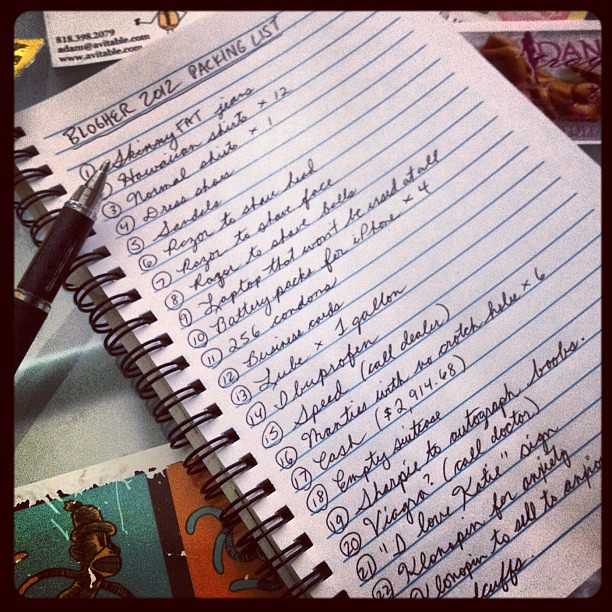 818.398.2079
adam@avitable.com
www.avitable.com
DAN
BLOGHER 2012 PACKING LIST
① Skinny FAT jeans
Hawaiian shirts × 12
③ Normal shirts × 1
④ Dress shoes
⑤ Sandals
⑥ Razor to shave head
⑦ Razor to shave face
⑧ Razor to shave balls
⑨ Laptop that won't be used at all
⑩ Battery packs for iPhone × 4
⑪ 256 condoms
⑫ Business cards
⑬ Lube × 1 gallon
⑭ Ibuprofen
⑮ Speed (call dealer)
⑯ Manties with no crotch holes × 6
⑰ Cash ($2,914.68)
⑱ Empty suitcase
⑲ Sharpie to autograph boobs.
⑳ Viagra? (call doctor)
㉑ "I love Katie" sign
㉒ Klonopin for anxiety
Klonopin to sell to
cuffs.